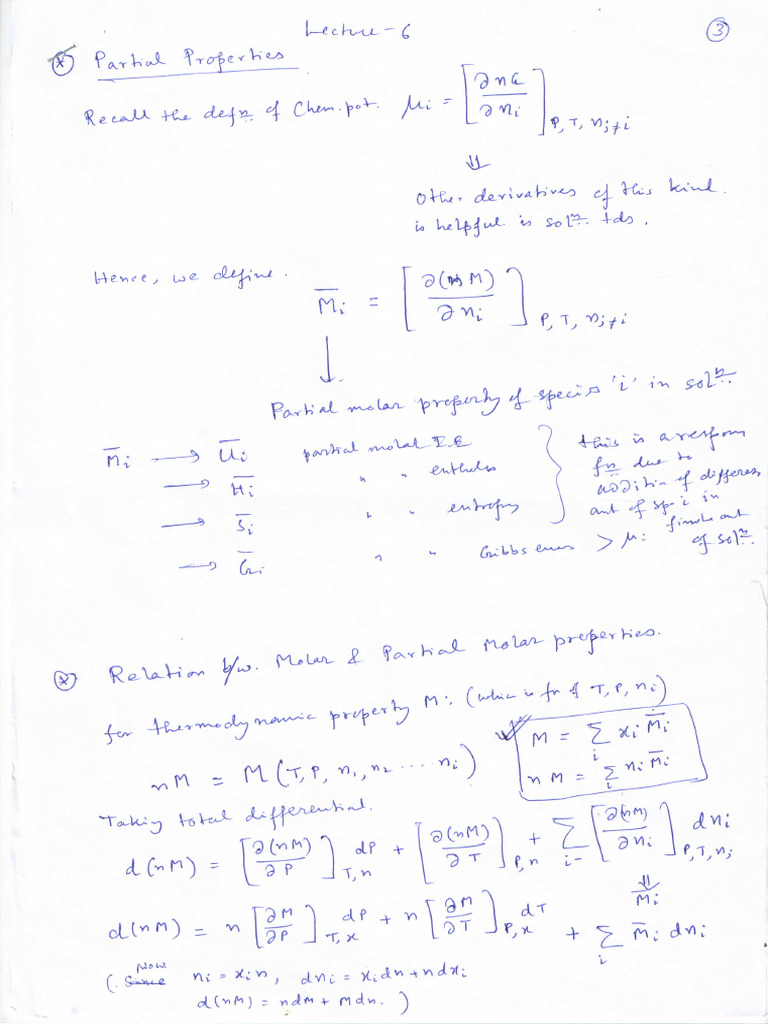 Lecture-6
③
* Partial Properties
Recall the defn of Chem. pot. μi = [∂nG / ∂ni] P, T, nj≠i
⇓
Other derivatives of this kind.
is helpful is soln tds.
Hence, we define. M̄i = [∂(nM) / ∂ni] P, T, nj≠i
↓
Partial molar property of species 'i' in soln.
M̄i → Ūi partial molal I.E
→ H̄i " " enthalpy
→ S̄i " " entropy
→ Ḡi " " Gibbs ener > μi
this is a respon
fn due to
addition of differen
amt of sp. i in
of soln.
* Relation b/w. Molar & Partial Molar properties.
for thermodynamic property M: (which is fn of T, P, ni)
nM = M(T, P, n1, n2 .... ni)
✓ M = Σi xi M̄i
nM = Σi ni M̄i
Taking total differential.
d(nM) = [∂(nM) / ∂P] T,n dP + [∂(nM) / ∂T] P,n + Σi- [∂(nM) / ∂ni] P,T,nj dni
⇓
M̄i
d(nM) = n [∂M / ∂P] T,x dP + n [∂M / ∂T] P,x dT + Σi M̄i dni
(. Since Now ni = xin, dni = xidn + ndxi
d(nM) = ndM + Mdn. )